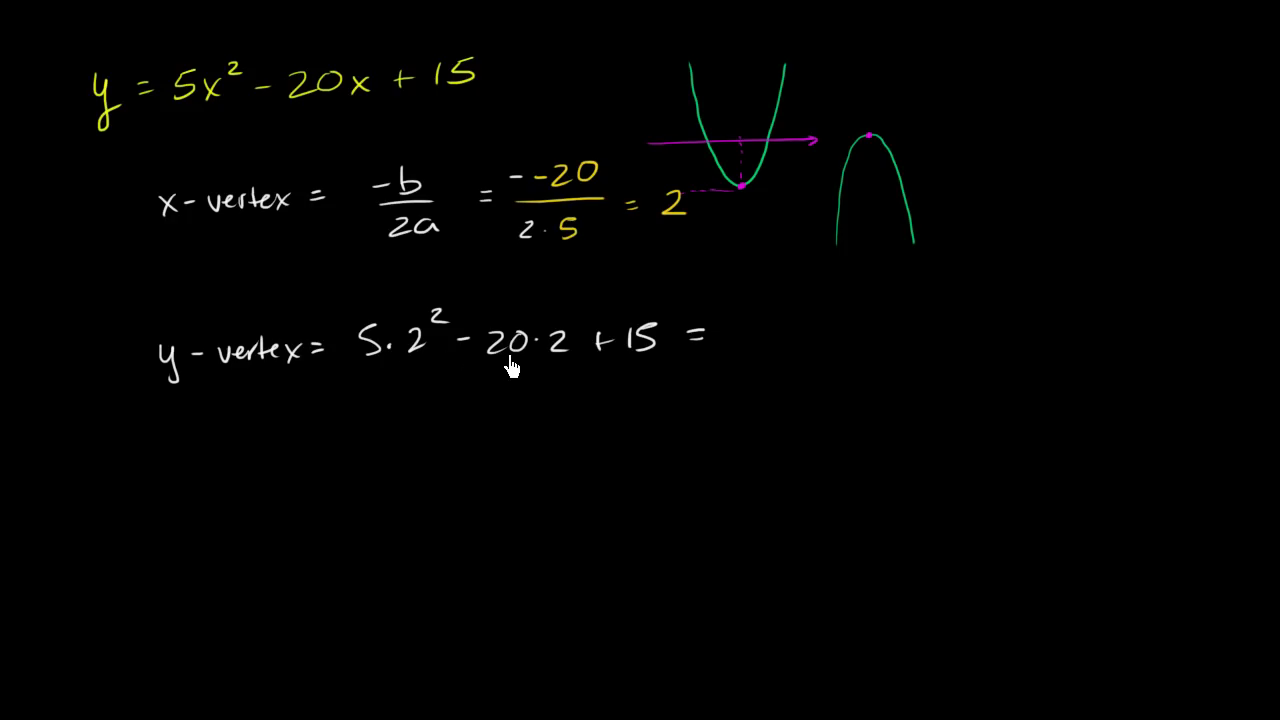 y = 5x² - 20x + 15
x - vertex = -b/2a = - -20/2 · 5 = 2
y - vertex = 5 · 2² - 20 · 2 + 15 =